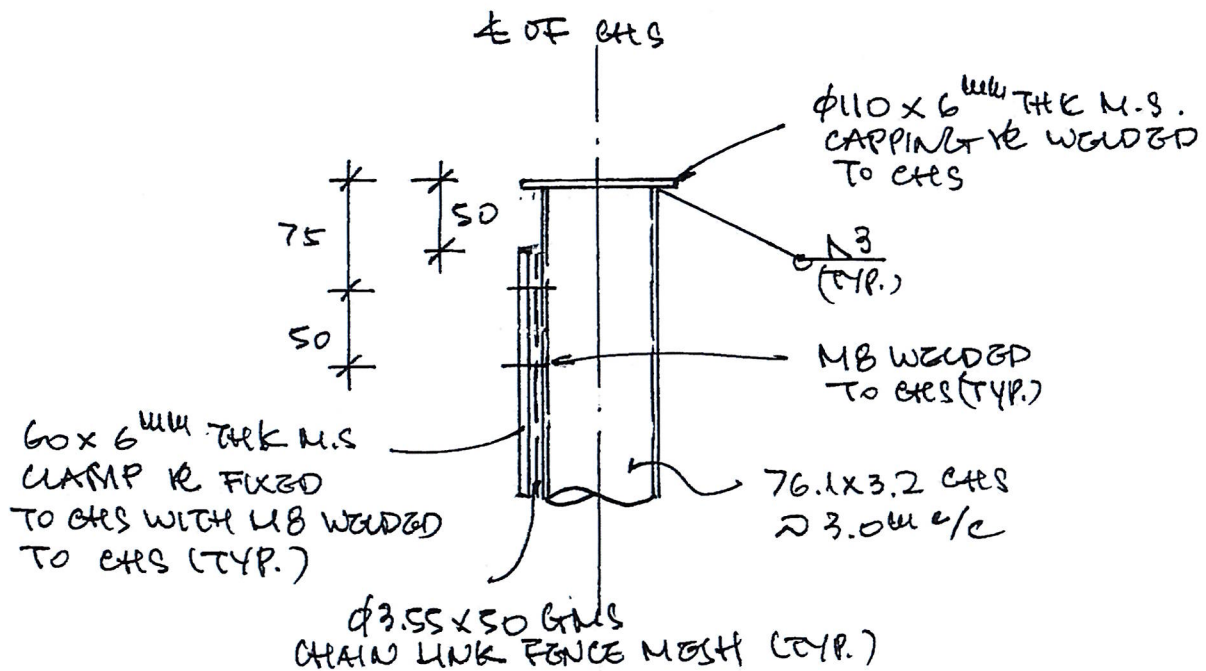 ℄ OF CHS
φ110 x 6mm THK M.S.
CAPPING PL WELDED
TO CHS
75
50
3
(TYP.)
50
M8 WELDED
TO CHS (TYP.)
60 x 6mm THK M.S
CLAMP PL FIXED
TO CHS WITH M8 WELDED
TO CHS (TYP.)
76.1x3.2 CHS
@ 3.0m c/c
φ3.55x50 GMS
CHAIN LINK FENCE MESH (TYP.)